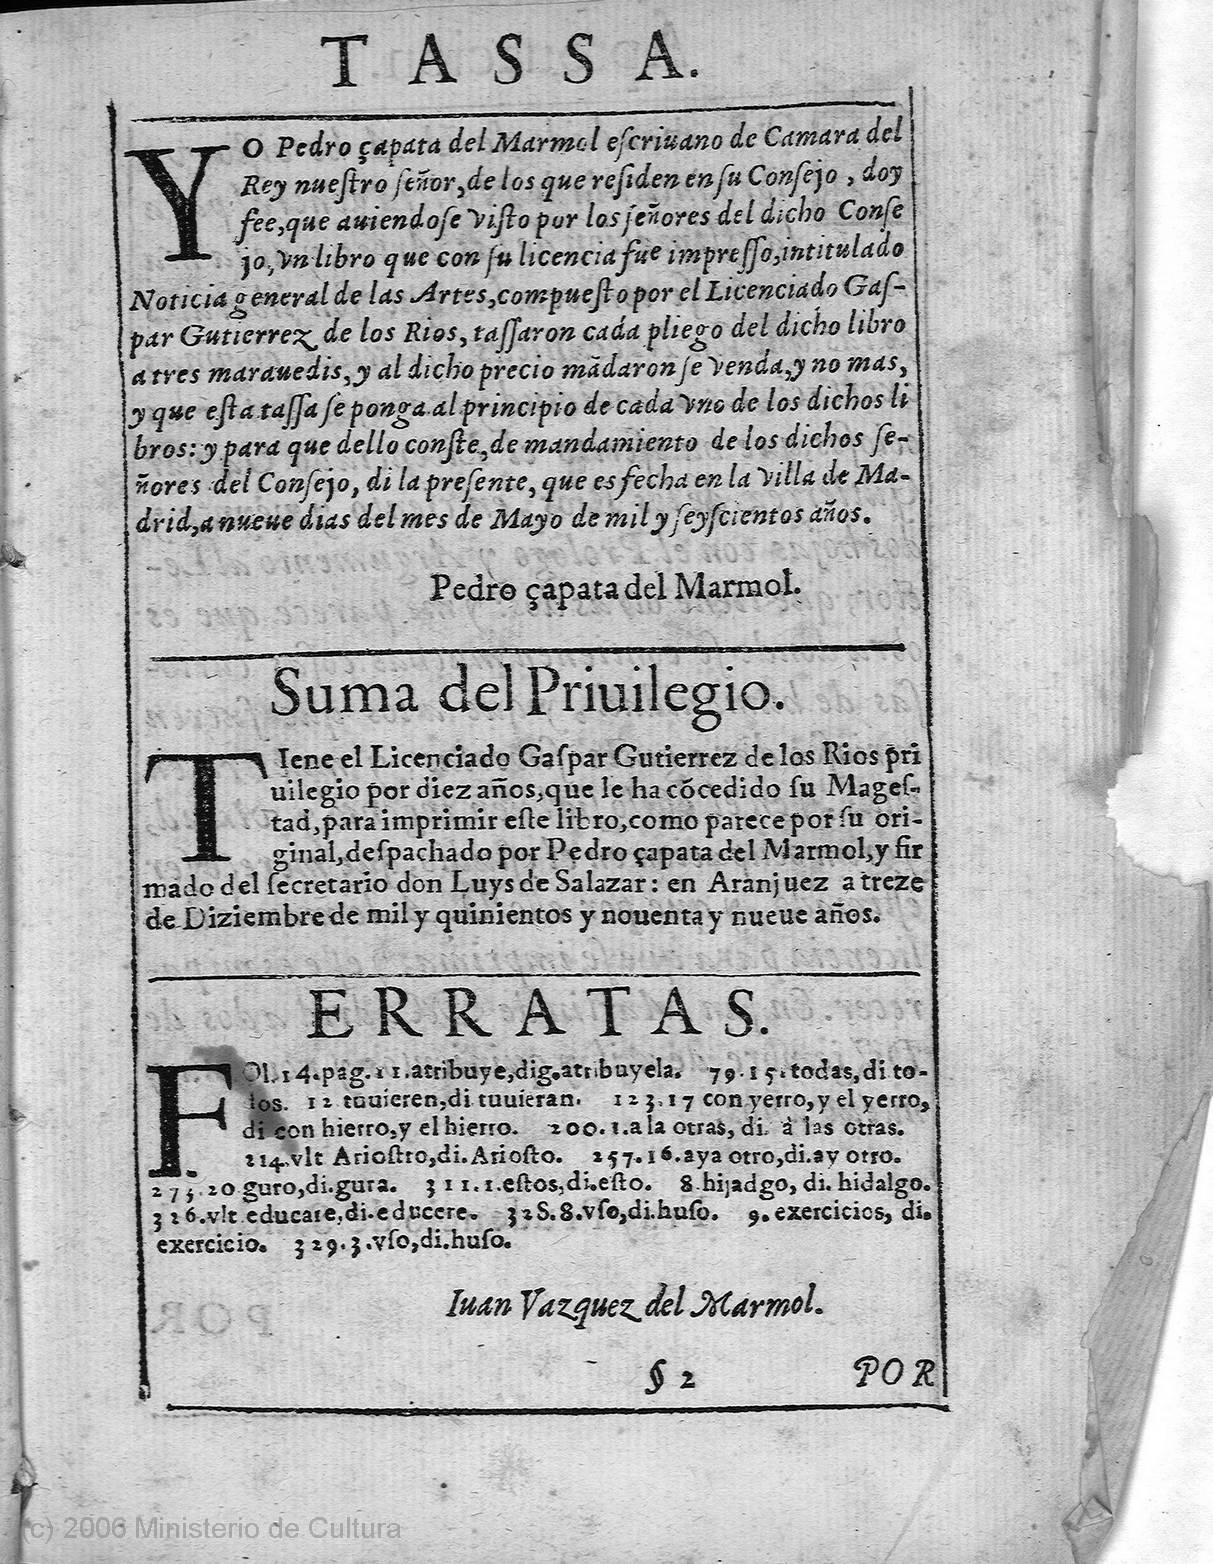 TASSA.
YO Pedro çapata del Marmol eſcriuano de Camara del
Rey nueſtro ſeñor, de los que reſiden en ſu Conſejo, doy
fee, que auiendoſe viſto por los ſeñores del dicho Conſe
jo, vn libro que con ſu licencia fue impreſſo, intitulado
Noticia general de las Artes, compueſto por el Licenciado Gaſ-
par Gutierrez de los Rios, taſſaron cada pliego del dicho libro
a tres marauedis, y al dicho precio mãdaron ſe venda, y no mas,
y que eſta taſſa ſe ponga al principio de cada vno de los dichos li
bros: y para que dello conſte, de mandamiento de los dichos ſe-
ñores del Conſejo, di la preſente, que es fecha en la villa de Ma-
drid, a nueue dias del mes de Mayo de mil y ſeyſcientos años.
Pedro çapata del Marmol.
Suma del Priuilegio.
TIene el Licenciado Gaſpar Gutierrez de los Rios pri
uilegio por diez años, que le ha cõcedido ſu Mageſ-
tad, para imprimir eſte libro, como parece por ſu ori-
ginal, deſpachado por Pedro çapata del Marmol, y fir
mado del ſecretario don Luys de Salazar: en Aranjuez a treze
de Diziembre de mil y quinientos y nouenta y nueue años.
ERRATAS.
FOl. 14. pag. 11. atribuye, dig. atribuyela. 79. 15. todas, di to-
dos. 12 tuuieren, di tuuieran. 123. 17 con yerro, y el yerro,
di con hierro, y el hierro. 200. 1. a la otras, di. à las otras.
214. vlt Arioſtro, di. Arioſto. 257. 16. aya otro, di. ay otro.
275. 20 guro, di. gura. 311. 1. eſtos, di. eſto. 8. hijadgo, di. hidalgo.
326. vlt educare, di. educere. 32S. 8. vſo, di. huſo. 9. exercicios, di.
exercicio. 329. 3. vſo, di. huſo.
Iuan Vazquez del Marmol.
§ 2 POR
(c) 2006 Ministerio de Cultura